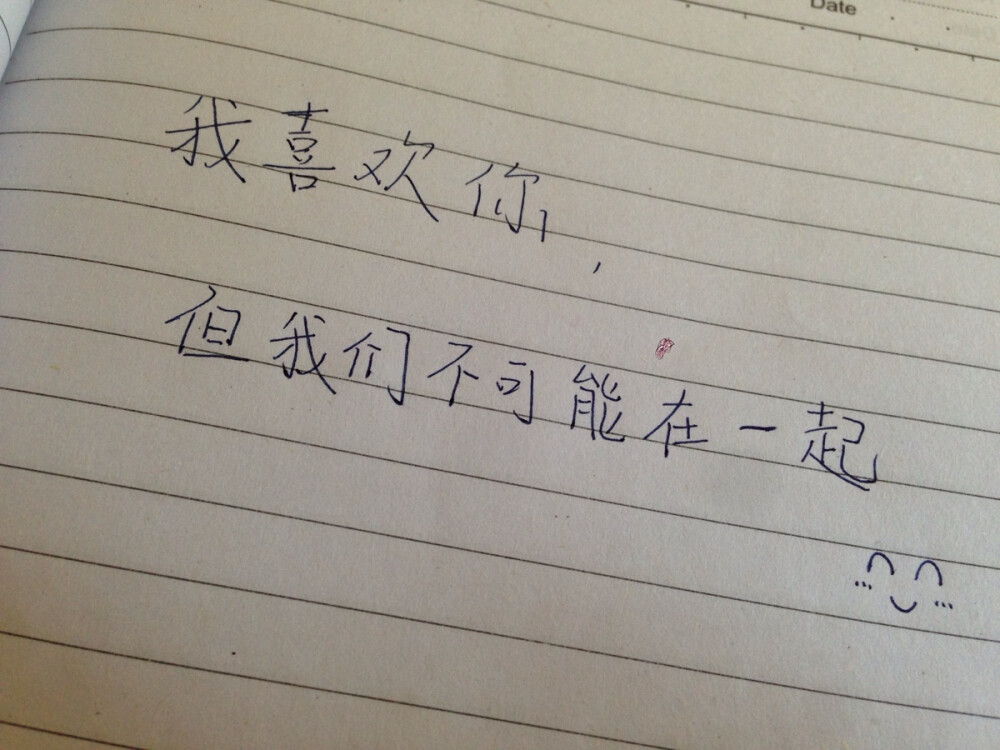 Date
我喜欢你,
但我们不可能在一起